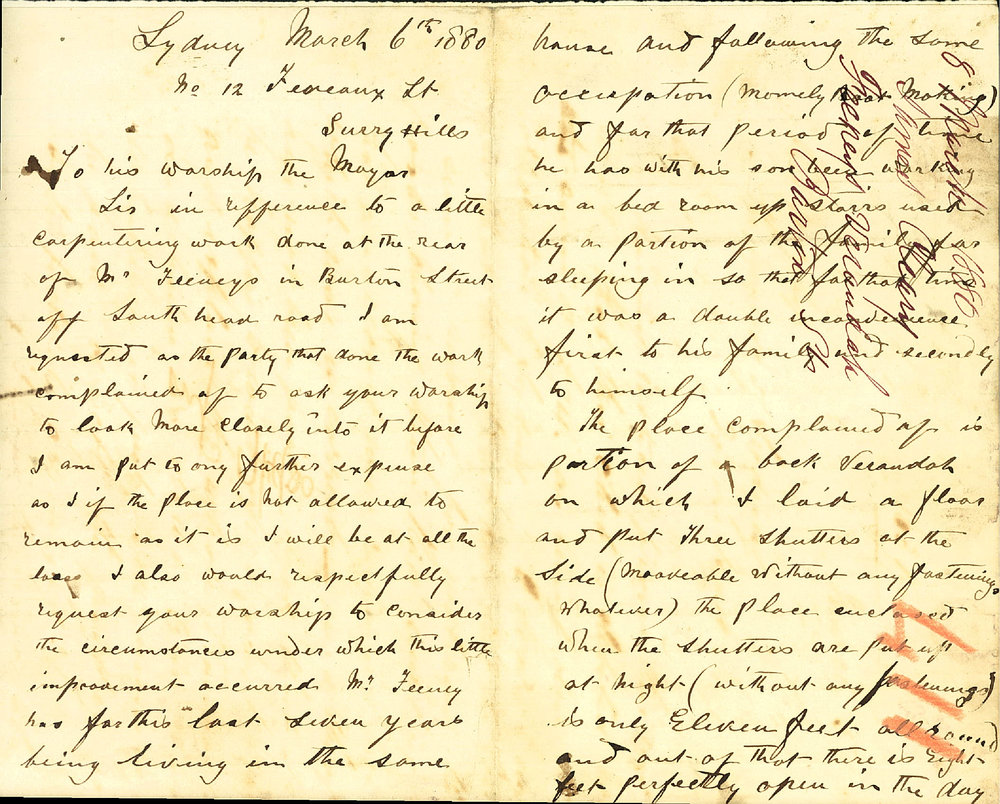 Sydney March 6th 1880
No 12 Feveaux St
Surry Hills
To his worship the Mayor
Sir in refference to a little
carpentering work done at the rear
of Mr Feeneys in Burton Street
off South head road I am
requested as the party that done the work
complained of to ask your worship
to look More Closely into it before
I am put to any further expense
as I if the place is not allowed to
remain as it is I will be at all the
loss I also would respectfully
request your worship to consider
the circumstances under which this little
improvement occurred Mr Feeney
has for this last seven years
being living in the same
house and following the same
occupation (Momely Boat Making)
and for that period of time
he has with his son been working
in a bed room up stairs used
by a portion of the family for
sleeping in so that for that time
it was a double inconvenience
first to his family and secondly
to himself
The place complained of is
portion of a back Verandah
on which I laid a floor
and put Three Shutters at the
Side (Mooveable Without any fastenings
Whatever) the place enclosed
when the shutters are put up
at night (without any fastenings)
is only Eleven feet all round
and out of that there is eight
feet perfectly open in the day
8 March 1880
Feeneys Verandah
Burton St